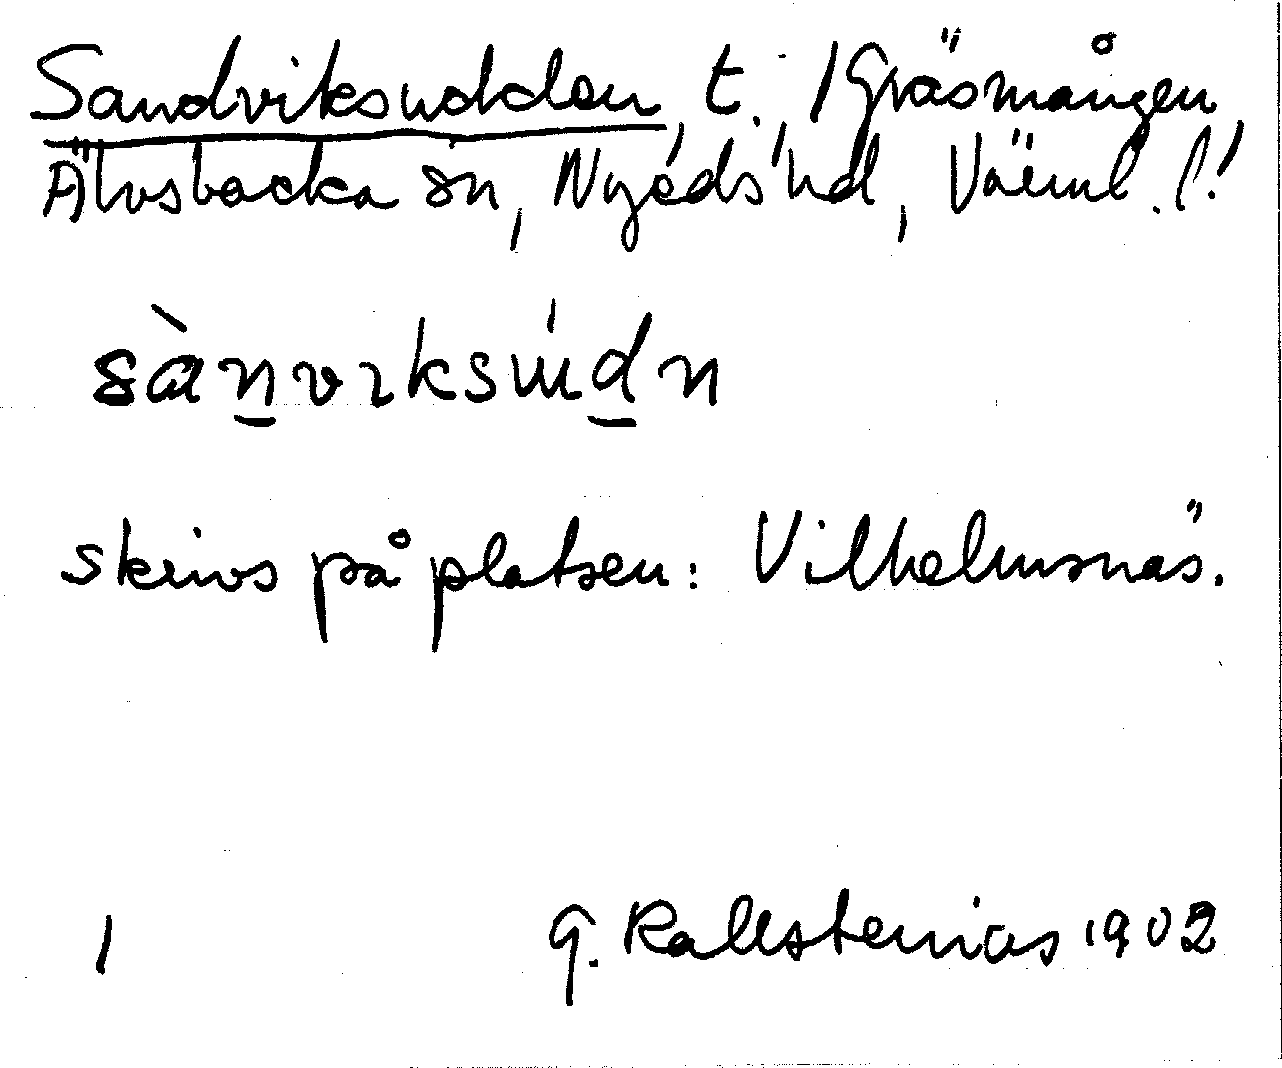 Sandviksudden, t. 1 Gräsmången,
Älvsbacka sn, Nyeds hd, Värml. l.!
sànvıksúdn
skrivs på platsen: Vilhelmsnäs.
1 G. Kallstenius 1902